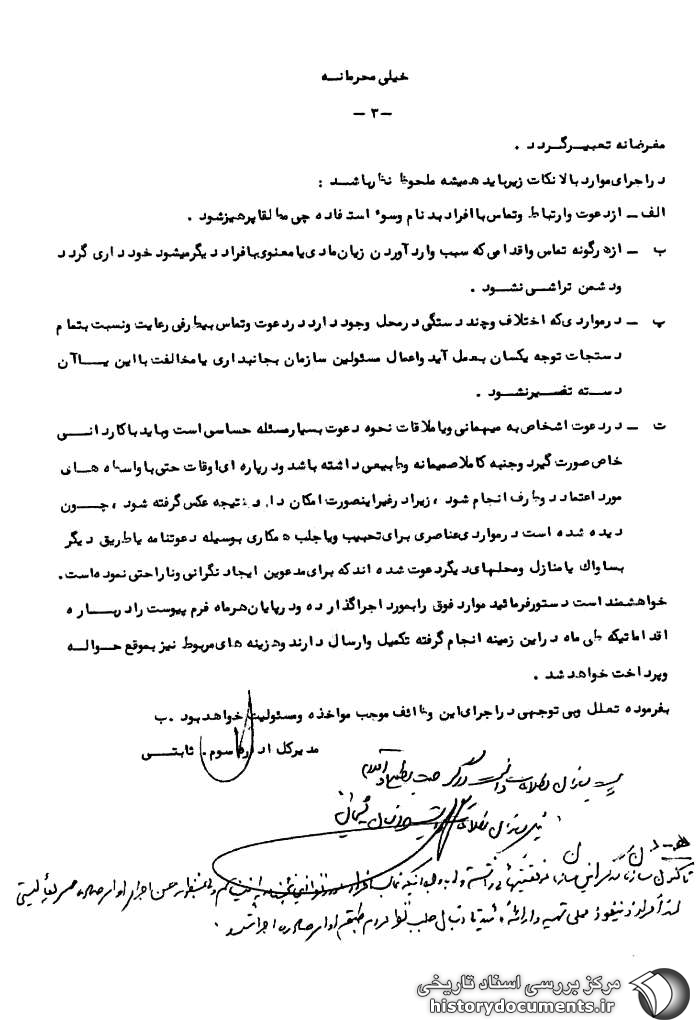 خیلی محرمانه
- ۳ -
مغرضانه تعبیر گردد .
در اجرای موارد بالا نکات زیر باید همیشه ملحوظ نظر باشد :
الف – از دعوت وارتباط وتماس با افراد بد نام وسوء استفاده چی مطلقا پرهیز شود .
ب – از هرگونه تماس واقدامی که سبب وارد آوردن زیان مادی یا معنوی بافراد دیگر میشود خود داری گردد
ودشمن تراشی نشود .
پ – در مواردی که اختلاف وچند دستگی در محل وجود دارد در دعوت وتماس بیطرفی رعایت ونسبت بتمام
دستجات توجه یکسان بعمل آید واعمال مسئولین سازمان بجانبداری یا مخالفت با این یا آن
دسته تفسیر نشود .
ت – در دعوت اشخاص به میهمانی ویا ملاقات نحوه دعوت بسیار مسئله حساسی است وباید با کاردانی
خاص صورت گیرد وجنبه کاملا صمیمانه وطبیعی داشته باشد ودر پاره ای اوقات حتی با واسطه های
مورد اعتماد دو طرف انجام شود ، زیرا در غیر اینصورت امکان دارد نتیجه عکس گرفته شود ، چون
دیده شده است در مواردی عناصری برای تحبیب ویا جلب همکاری بوسیله دعوتنامه یا طریق دیگر
بساواك یا منازل ومحلهای دیگر دعوت شده اند که برای مدعوین ایجاد نگرانی وناراحتی نموده است .
خواهشمند است دستور فرمائید موارد فوق را بمورد اجرا گذارده ودر پایان هر ماه فرم پیوست را درباره
اقداماتیکه طی ماه در این زمینه انجام گرفته تکمیل وارسال دارند وهزینه های مربوط نیز بموقع حواله
وپرداخت خواهد شد .
بفرموده تعلل وبی توجهی در اجرای این وظائف موجب مواخذه ومسئولیت خواهد بود . ب
مدیرکل اداره سوم . ثابتی
مرکز بررسی اسناد تاریخی
historydocuments.ir